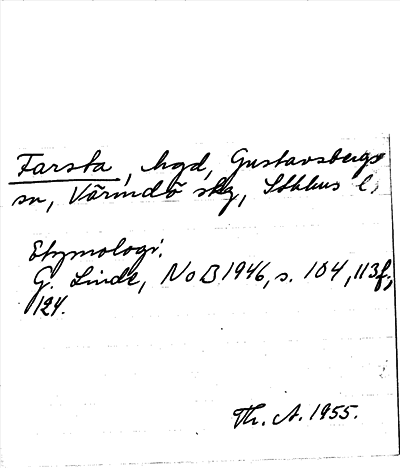 Farsta, hgd, Gustavsbergs
sn, Värmdö skg, Sthlms l.
Etymologi:
G. Linde, NoB 1946, s. 104, 113f,
124.
Th. A. 1955.